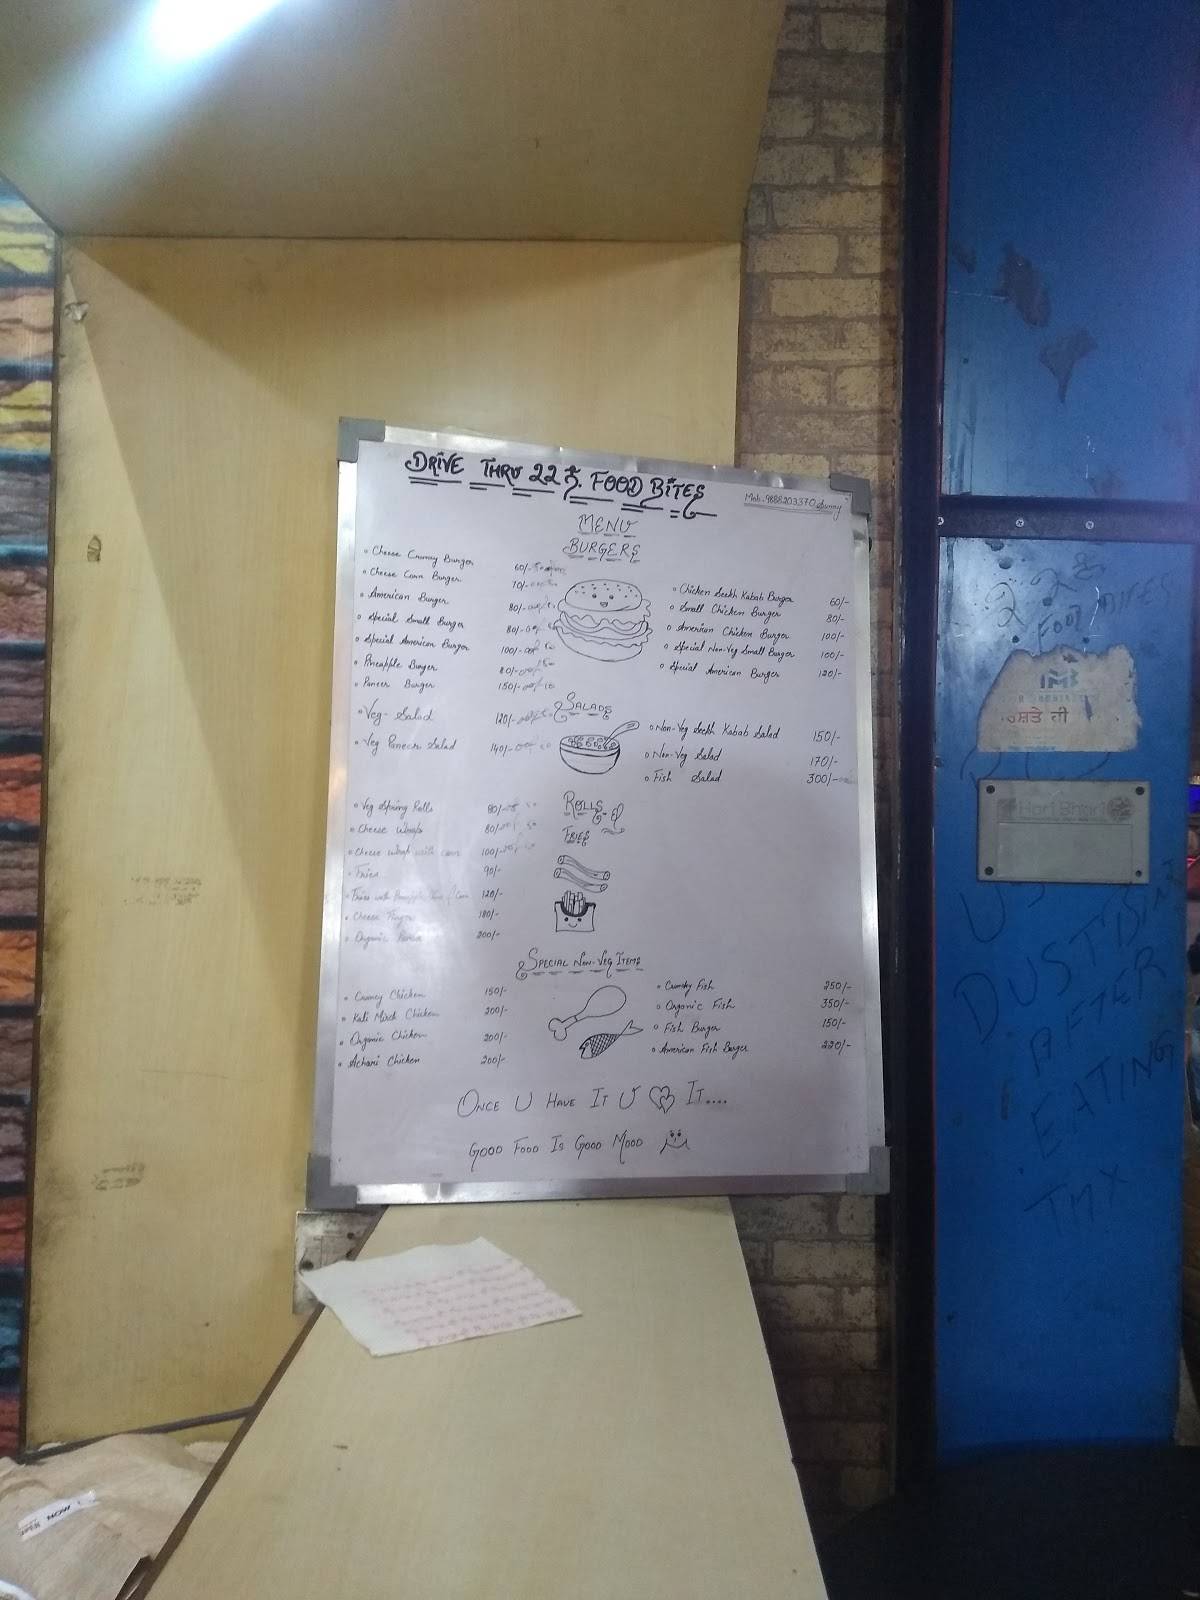 DRIVE THRU 22 ਨੰ. FOOD BITES
Mob.-9888203370 Sunny
MENU
BURGERS
Cheese Cruncy Burger 60/-
Cheese Corn Burger 70/-
American Burger 80/-
Special Small Burger 80/-
Special American Burger 100/-
Pineapple Burger 80/-
Paneer Burger 150/-
Chicken Seekh Kabab Burger 60/-
Small Chicken Burger 80/-
American Chicken Burger 100/-
Special Non-Veg Small Burger 100/-
Special American Burger 120/-
SALADS
Veg- Salad 120/-
Veg Paneer Salad 140/-
Non-Veg Seekh Kabab Salad 150/-
Non-Veg Salad 170/-
Fish Salad 300/-
ROLLS &
FRIES
Veg Spring Rolls 80/-
Cheese Wrap 80/-
Cheese Wrap with corn 100/-
Fries 90/-
Fries with Pineapple & Corn 120/-
Cheese Finger 180/-
Organic Paneer 200/-
SPECIAL NON-VEG ITEMS
Cruncy Chicken 150/-
Kali Mirch Chicken 200/-
Organic Chicken 200/-
Achari Chicken 200/-
Crunchy Fish 250/-
Organic Fish 350/-
Fish Burger 150/-
American Fish Burger 220/-
ONCE U HAVE IT U IT....
GOOD FOOD IS GOOD MOOD
FOOD BITES
ਰਸ਼ਤੇ ਦੀ
Hari Bhari
USE
DUSTBIN
AFTER
EATING
TNX
NOW